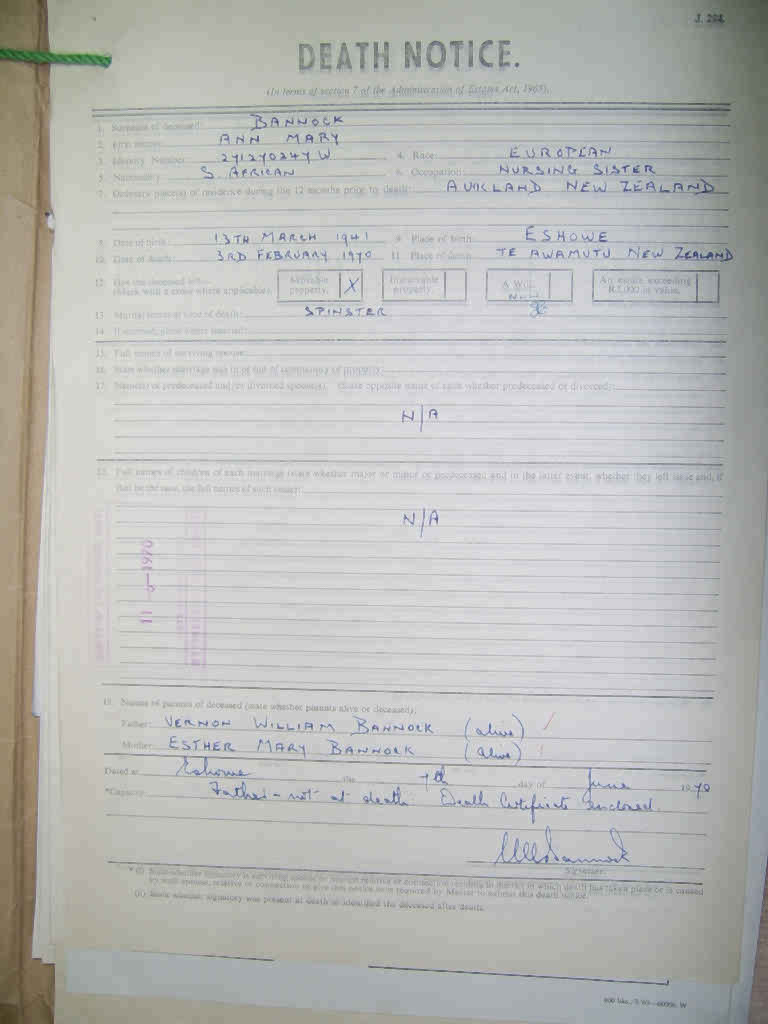 J. 294
DEATH NOTICE.
(In terms of section 7 of the Administration of Estates Act, 1965).
1. Surname of deceased: BANNOCK
2. First names: ANN MARY
3. Identity Number: 271270247 W 4. Race: EUROPEAN
5. Nationality: S. AFRICAN 6. Occupation: NURSING SISTER
7. Ordinary place(s) of residence during the 12 months prior to death: AUKLAND NEW ZEALAND
8. Date of birth: 13TH MARCH 1941 9. Place of birth: ESHOWE
10. Date of death: 3RD FEBRUARY 1970 11. Place of death: TE AWAMUTU NEW ZEALAND
12. Has the deceased left: Movable X Immovable A Will An estate exceeding
(Mark with a cross where applicable). property. property. R3,000 in value.
13. Marital status at time of death: SPINSTER
14. If married, place where married:
15. Full names of surviving spouse:
16. State whether marriage was in or out of community of property:
17. Name(s) of predeceased and/or divorced spouse(s). (State opposite name of each whether predeceased or divorced):
N/A
18. Full names of children of each marriage (state whether major or minor or predeceased and in the latter event, whether they left issue and, if
that be the case, the full names of such issue):
N/A
11 -6-1970
19. Names of parents of deceased (state whether parents alive or deceased):
Father: VERNON WILLIAM BANNOCK (alive)
Mother: ESTHER MARY BANNOCK (alive)
Dated at Eshowe the 7th day of June 1970
*Capacity: Father - not at death. Death Certificate enclosed.
Signature.
* (i) State whether signatory is surviving spouse or nearest relative or connection residing in district in which death has taken place or is caused
by such spouse, relative or connection to give this notice or is required by Master to submit this death notice.
(ii) State whether signatory was present at death or identified the deceased after death.